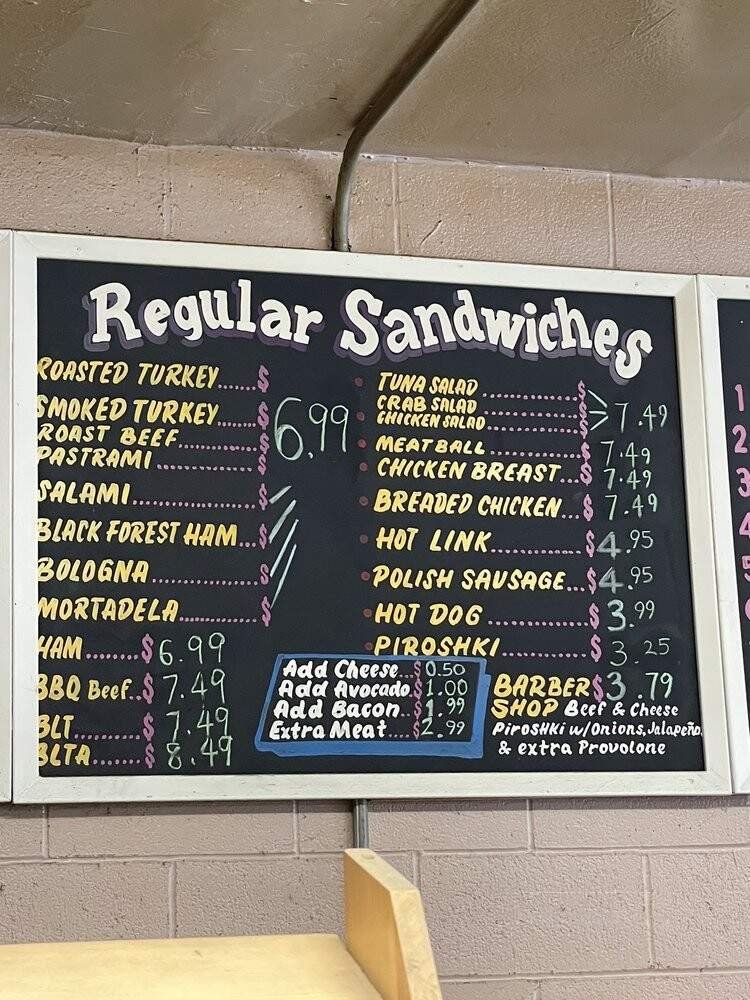 Regular Sandwiches
ROASTED TURKEY......$
SMOKED TURKEY......$
ROAST BEEF..........$
PASTRAMI............$
6.99
SALAMI..............$
BLACK FOREST HAM...$
BOLOGNA............$
MORTADELA..........$
HAM.......$6.99
BBQ Beef..$7.49
BLT........$7.49
BLTA.......$8.49
TUNA SALAD..........$
CRAB SALAD..........$
CHICKEN SALAD.......$
7.49
MEATBALL..........$7.49
CHICKEN BREAST...$7.49
BREADED CHICKEN...$7.49
HOT LINK..........$4.95
POLISH SAUSAGE...$4.95
HOT DOG..........$3.99
PIROSHKI.........$3.25
Add Cheese..$0.50
Add Avocado.$1.00
Add Bacon..$1.99
Extra Meat...$2.99
BARBER $3.79
SHOP Beef & Cheese
PIROSHKI w/Onions, Jalapeño,
& extra Provolone
1
2
3
4
5